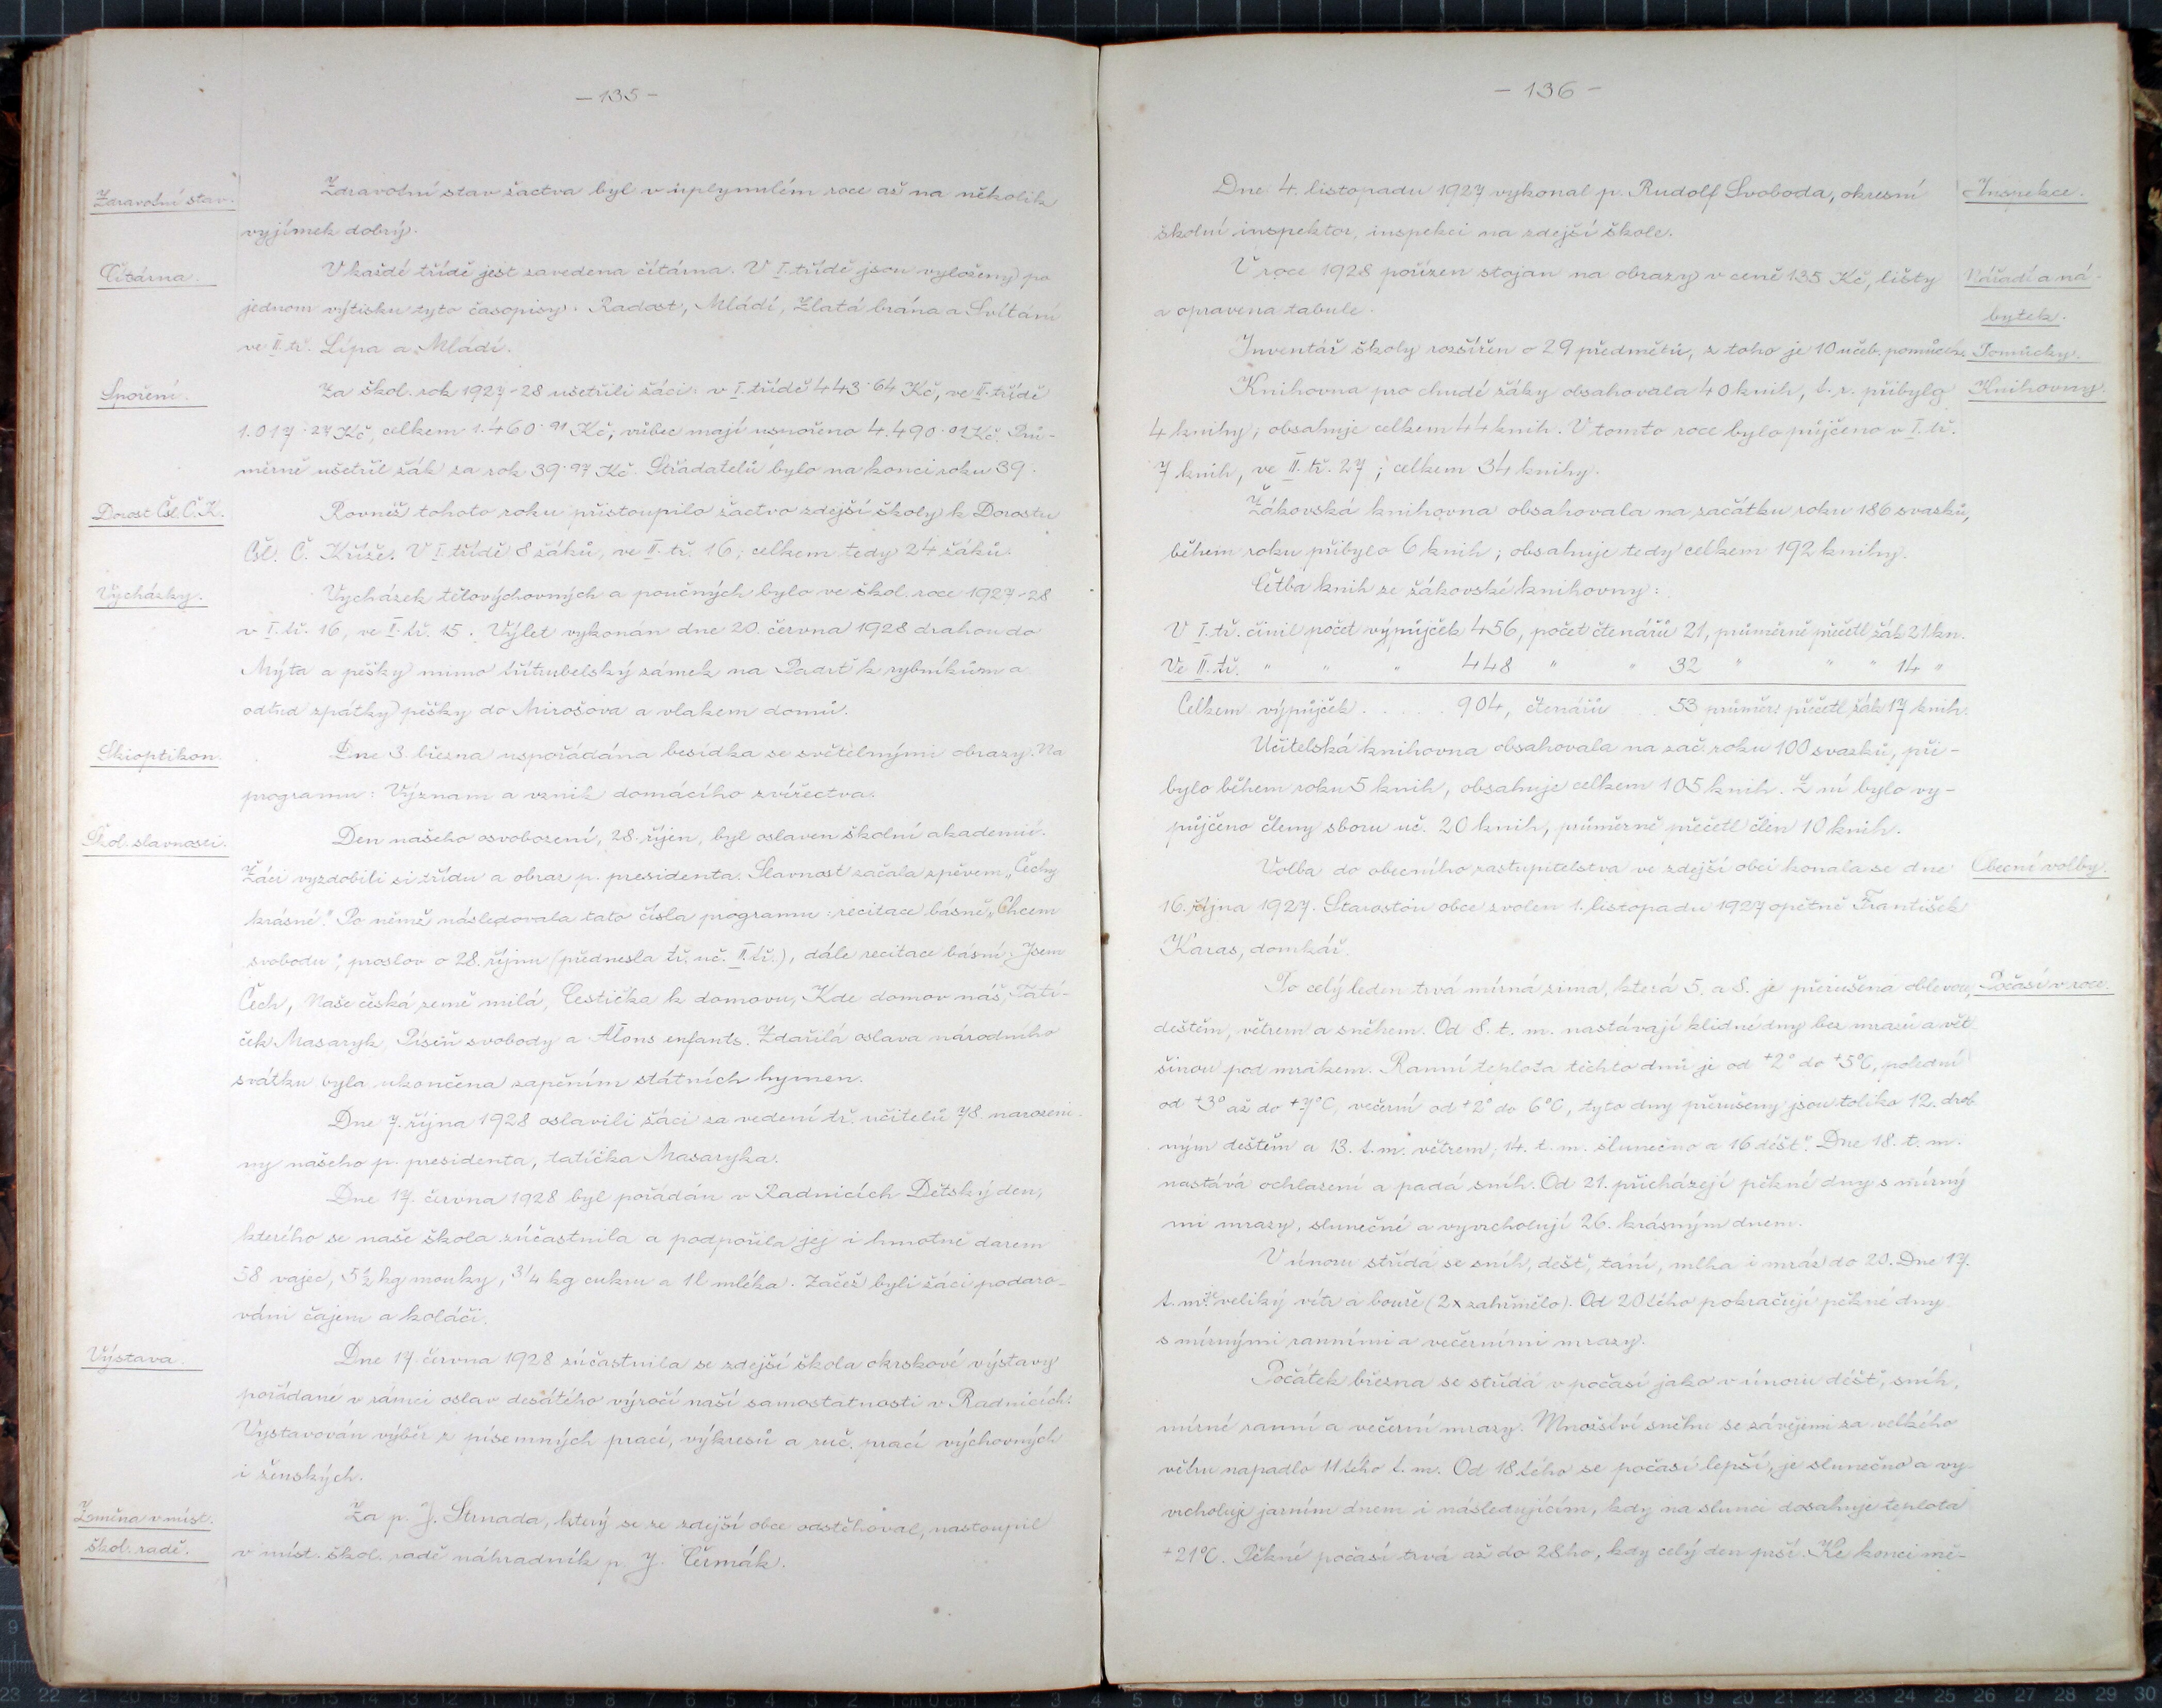 - 135 -
Zdravotní stav.
Zdravotní stav žactva byl v uplynulém roce až na několik
vyjímek dobrý.
Čítárna.
V každé třídě jest zavedena čítárna. V I. třídě jsou vyloženy po
jednom výtisku tyto časopisy: Radost, Mládí, Zlatá brána a Svítání
ve II. tř. Lípa a Mládí.
Spoření.
Za škol. rok 1927-28 ušetřili žáci: v I. třídě 443·64 Kč, ve II. třídě
1.017·27 Kč, celkem 1.460·91 Kč; vůbec mají uspořeno 4.490·01 Kč. Prů-
měrně ušetřil žák za rok 39·97 Kč. Střadatelů bylo na konci roku 39.
Dorost Čsl. Č. K.
Rovněž tohoto roku přistoupilo žactvo zdejší školy k Dorostu
Čsl. Č. Kříže. V I. třídě 8 žáků, ve II. tř. 16; celkem tedy 24 žáků.
Vycházky.
Vycházek tělovýchovných a poučných bylo ve škol. roce 1927-28
v I. tř. 16, ve II. tř. 15. Výlet vykonán dne 20. června 1928 drahou do
Mýta a pěšky mimo třítrubelský zámek na Padrť k rybníkům a
odtud zpátky pěšky do Mirošova a vlakem domů.
Skioptikon.
Dne 3. března uspořádána besídka se světelnými obrazy. Na
programu: Význam a vznik domácího zvířectva.
Škol. slavnosti.
Den našeho osvobození, 28. říjen, byl oslaven školní akademií.
Žáci vyzdobili si třídu a obraz p. presidenta. Slavnost začala zpěvem „Čechy
krásné". Po němě následovala tato čísla programu: recitace básně „Chcem
svobodu", proslov o 28. říjnu (přednesla tř. uč. II. tř.), dále recitace básní: Jsem
Čech, Naše česká země milá, Cestička k domovu, Kde domov náš, Tatí-
ček Masaryk, Píseň svobody a Alons enfants. Zdařilá oslava národního
svátku byla ukončena zapěním státních hymen.
Dne 7. října 1928 oslavili žáci za vedení tř. učitelů 78. narozeni-
ny našeho p. presidenta, tatíčka Masaryka.
Dne 17. června 1928 byl pořádán v Radnicích Dětský den,
kterého se naše škola zúčastnila a podpořila jej i hmotně darem
58 vajec, 5½ kg mouky, 3/4 kg cukru a 1 l mléka. Začež byli žáci podaro-
váni čajem a koláči.
Výstava.
Dne 17. června 1928 zúčastnila se zdejší škola okrskové výstavy
pořádané v rámci oslav desátého výročí naší samostatnosti v Radnicích.
Vystavován výběr z písemných prací, výkresů a ruč. prací výchovných
i ženských.
Změna v míst.
škol. radě.
Za p. J. Strnada, který se ze zdejší obce odstěhoval, nastoupil
v míst. škol. radě náhradník p. J. Čermák.
- 136 -
Dne 4. listopadu 1927 vykonal p. Rudolf Svoboda, okresní
Inspekce.
školní inspektor, inspekci na zdejší škole.
V roce 1928 pořízen stojan na obrazy v ceně 135 Kč, lišty
Nářadí a ná-
a opravena tabule.
bytek.
Inventář školy rozšířen o 29 předmětů, z toho je 10 učeb. pomůcek.
Pomůcky.
Knihovna pro chudé žáky obsahovala 40 knih, t. r. přibyly
Knihovny.
4 knihy; obsahuje celkem 44 knih. V tomto roce bylo půjčeno v I. tř.
7 knih, ve II. tř. 27; celkem 34 knihy.
Žákovská knihovna obsahovala na začátku roku 186 svazků,
během roku přibylo 6 knih; obsahuje tedy celkem 192 knihy.
Četba knih ze žákovské knihovny:
V I. tř. činil počet výpůjček 456, počet čtenářů 21, průměrně přečetl žák 21 kn.
Ve II. tř. " " " 448 " " 32 " " " 14 "
Celkem výpůjček . . . . . 904, čtenářů . . 53 průměr. přečetl žák 17 knih.
Učitelská knihovna obsahovala na zač. roku 100 svazků, při-
bylo během roku 5 knih, obsahuje celkem 105 knih. Z ní bylo vy-
půjčeno členy sboru uč. 20 knih, průměrně přečetl člen 10 knih.
Volba do obecního zastupitelstva ve zdejší obci konala se dne
Obecní volby.
16. října 1927. Starostou obce zvolen 1. listopadu 1927 opětně František
Karas, domkář.
Po celý leden trvá mírná zima, která 5. a 8. je přerušena oblevou,
Počasí v roce.
deštěm, větrem a sněhem. Od 8. t. m. nastávají klidné dny bez mrazů a vět-
šinou pod mrakem. Ranní teplota těchto dnů je od +2° do +5°C, polední
od +3° až do +7°C, večerní od +2° do 6°C, tyto dny přerušeny jsou toliko 12. drob-
ným deštěm a 13. t. m. větrem, 14. t. m. slunečno a 16 déšť. Dne 18. t. m.
nastává ochlazení a padá sníh. Od 21. přicházejí pěkné dny s mírný-
mi mrazy, slunečné a vyvrcholují 26. krásným dnem.
V únoru střídá se sníh, déšť, tání, mlha i mráz do 20. Dne 17.
t. m. je veliký vítr a bouře (2x zahřmělo). Od 20tého pokračují pěkné dny
s mírnými ranními a večerními mrazy.
Počátek března se střídá v počasí jako v únoru déšť, sníh,
mírné ranní a večerní mrazy. Množství sněhu se závějemi za velkého
větru napadlo 11tého t. m. Od 18tého se počasí lepší, je slunečno a vy-
vrcholuje jarním dnem i následujícím, kdy na slunci dosahuje teplota
+21°C. Pěkné počasí trvá až do 28ho, kdy celý den prší. Ke konci mě-